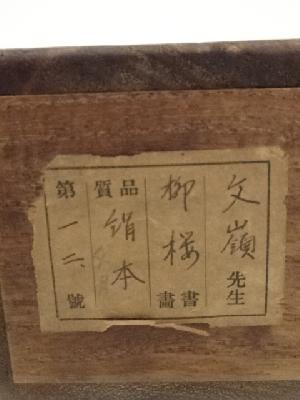 文嶺先生
柳桜書畵
品質絹本
第一二號